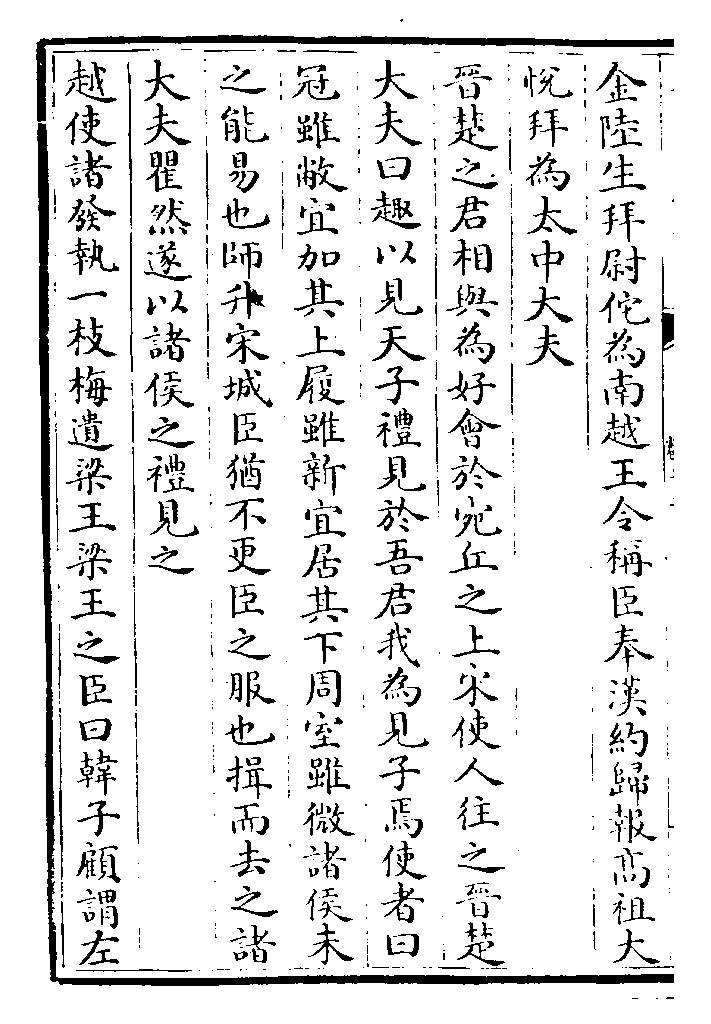 金陸生拜尉佗為南越王令稱臣奉漢約歸報高祖大
悅拜為太中大夫
晉楚之君相與為好會於宛丘之上宋使人往之晉楚
大夫曰趣以見天子禮見於吾君我為見子焉使者曰
冠雖敝宜加其上履雖新宜居其下周室雖微諸侯未
之能易也師升宋城臣猶不更臣之服也揖而去之諸
大夫瞿然遂以諸侯之禮見之
越使諸發執一枝梅遺梁王梁王之臣曰韓子顧謂左